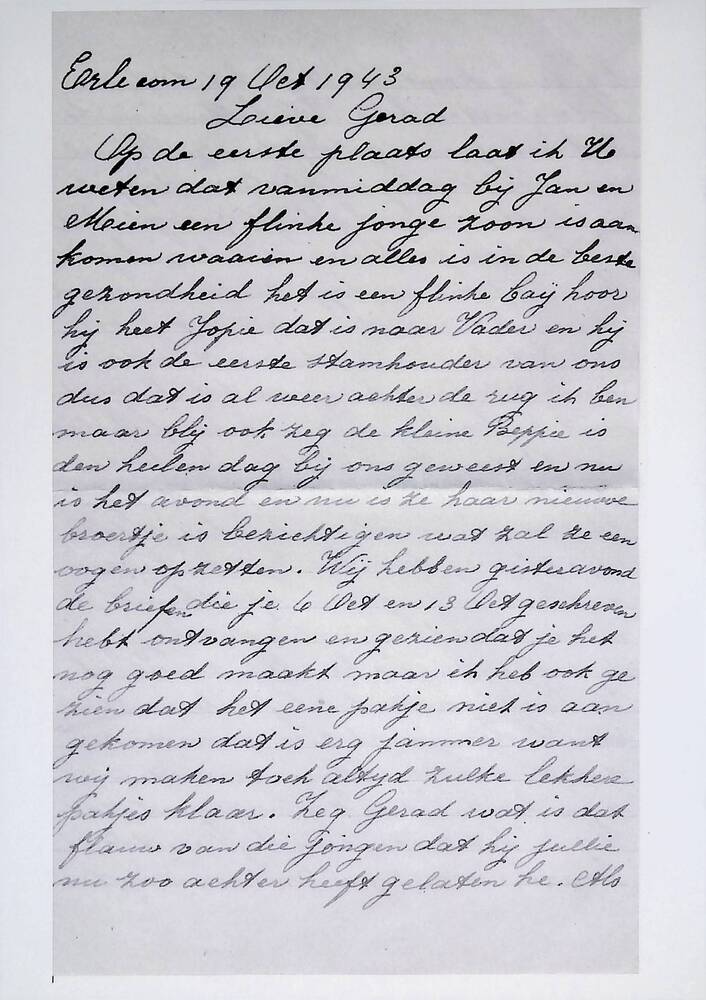 Erlecom 19 Oct 1943
Lieve Gerad
Op de eerste plaats laat ik U
weten dat vanmiddag bij Jan en
Mien een flinke jonge zoon is aan
komen waaien en alles is in de beste
gezondheid het is een flinke baÿ hoor
hij heet Jopie dat is naar Vader en hij
is ook de eerste stamhouder van ons
dus dat is al weer achter de rug ik ben
maar blij ook zeg de kleine Beppie is
den heelen dag bij ons geweest en nu
is het avond en nu is ze haar nieuwe
broertje is bezichtigen wat zal ze een
oogen opzetten. Wij hebben gisteravond
de briefen die je 6 Oct en 13 Oct geschreven
hebt ontvangen en gezien dat je het
nog goed maakt maar ik heb ook ge
zien dat het eene pakje niet is aan
gekomen dat is erg jammer want
wij maken toch altyd zulke lekkere
pakjes klaar. Zeg Gerad wat is dat
flauw van die jongen dat hij jullie
nu zoo achter heeft gelaten he. Als